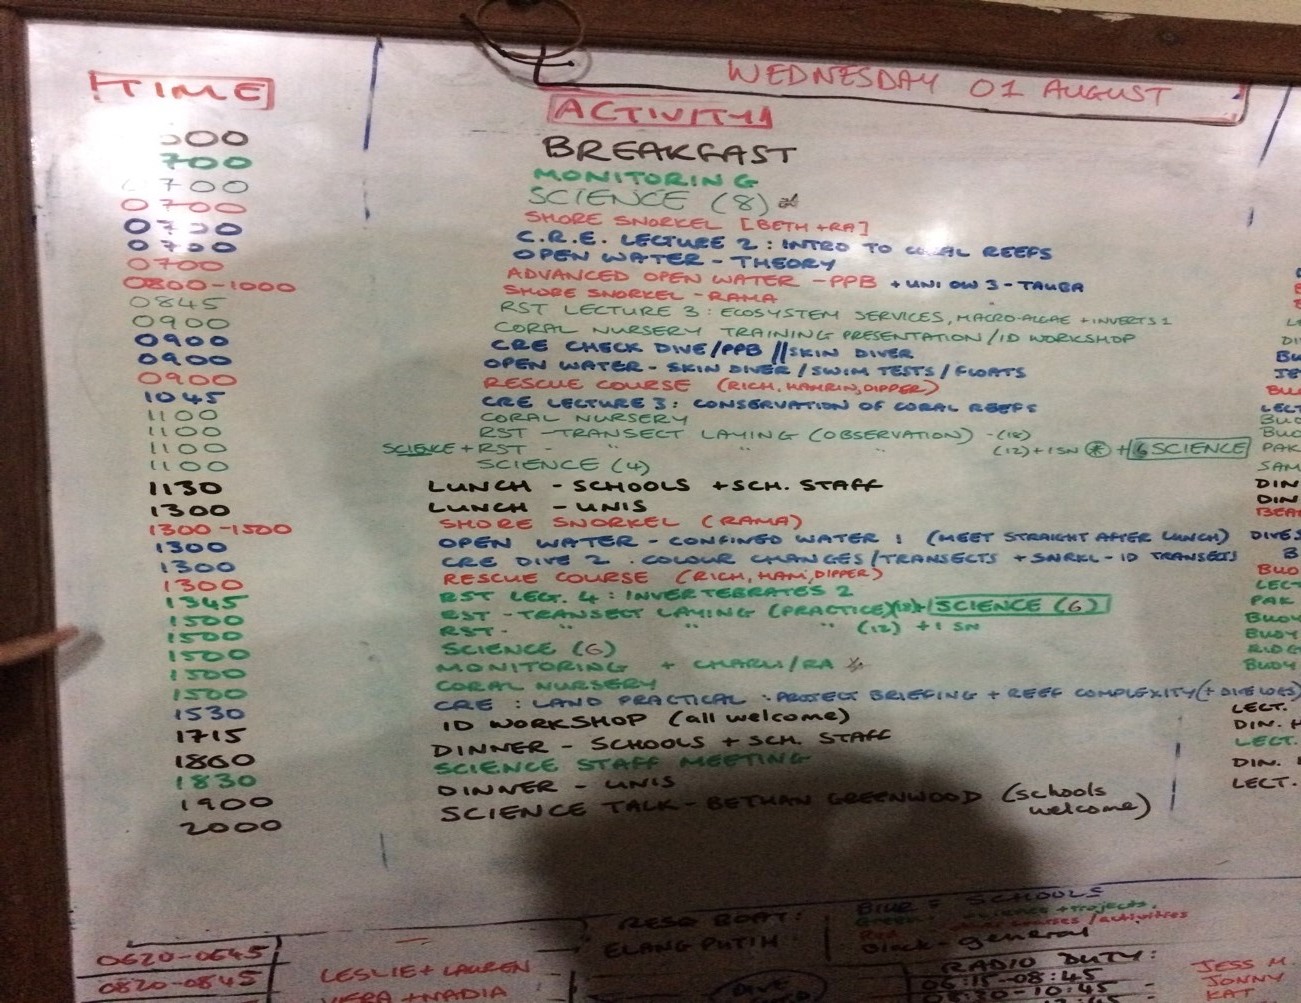 WEDNESDAY 01 AUGUST
TIME ACTIVITY
600 BREAKFAST
700 MONITORING
0700 SCIENCE (8)
0700 SHORE SNORKEL [BETH + RA]
0730 C.R.E. LECTURE 2 : INTRO TO CORAL REEFS
0700 OPEN WATER - THEORY
0700 ADVANCED OPEN WATER - PPB + UNI OW 3 - TAUBA
0800 - 1000 SHORE SNORKEL - RAMA
0845 RST LECTURE 3 : ECOSYSTEM SERVICES, MACRO-ALGAE + INVERTS 1
0900 CORAL NURSERY TRAINING PRESENTATION / ID WORKSHOP
0900 CRE CHECK DIVE/PPB // SKIN DIVER
0900 OPEN WATER - SKIN DIVER / SWIM TESTS / FLOATS
0900 RESCUE COURSE (RICH, HAMRIN, DIPPER)
1045 CRE LECTURE 3 : CONSERVATION OF CORAL REEFS
1100 CORAL NURSERY
1100 RST - TRANSECT LAYING (OBSERVATION) - (18)
1100 SCIENCE + RST - " " " (12) + 1 SN * + 6 SCIENCE PAK
1100 SCIENCE (4) SAM
1130 LUNCH - SCHOOLS + SCH. STAFF DIN
1300 LUNCH - UNIS DIN
1300 - 1500 SHORE SNORKEL (RAMA) BEA
1300 OPEN WATER - CONFINED WATER 1 (MEET STRAIGHT AFTER LUNCH) DIVES
1300 CRE DIVE 2. COLOUR CHANGES / TRANSECTS + SNRKL - ID TRANSECTS B
1300 RESCUE COURSE (RICH, HAM, DIPPER) BUO
1345 RST LECT. 4 : INVERTEBRATES 2 LECT
1500 RST - TRANSECT LAYING (PRACTICE) + SCIENCE (6) PAK
1500 RST - " " " (12) + 1 SN BUOY
1500 SCIENCE (6) BUOY
1500 MONITORING + CHARLI/RA RIDG
1500 CORAL NURSERY BUOY
1530 CRE : LAND PRACTICAL : PROJECT BRIEFING + REEF COMPLEXITY (+ DIVE LOGS)
1715 ID WORKSHOP (all welcome) LECT.
1800 DINNER - SCHOOLS + SCH. STAFF DIN. H
1830 SCIENCE STAFF MEETING LECT.
1900 DINNER - UNIS DIN.
2000 SCIENCE TALK - BETHAN GREENWOOD (schools welcome) LECT.
BLUE = SCHOOLS
Black - general
RESQ BOAT:
ELANG PUTIH
RADIO DUTY:
06:15 - 08:45 JESS M.
08:30 - 10:45 JONNY
KAT
0620-0645 LESLIE + LAUREN
0820-0845 VERA + NADIA